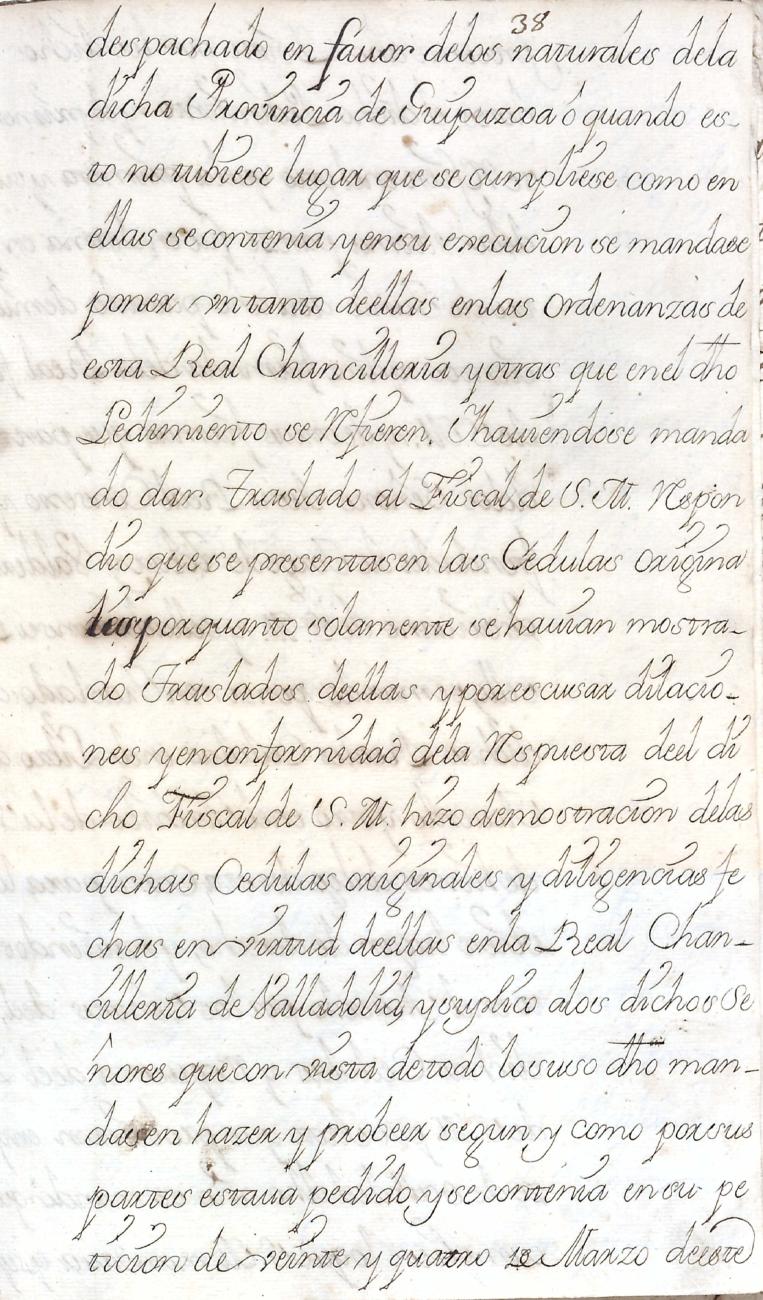 38
despachado en favor delos naturales dela
dicha Provincia de Guipuzcoa ô quando es-
to no tubiese lugar que se cumpliese como en
ellas se contenia y ensu execucion se mandase
poner vn tanto deellas enlas ordenanzas de
esta Real Chancilleria y otras que en el dho
Pedimiento se Rfieren. Y haviendose manda
do dar Traslado al Fiscal de S. M. Respon
dio que se presentasen las Cedulas origina
les y porquanto solamente se havian mostra-
do Traslados deellas y por escusar dilacio-
nes y en conformidad dela Respuesta deel di
cho Fiscal de S. M. hizo demostracion delas
dichas Cedulas originales y diligencias fe
chas en virtud deellas enla Real Chan-
cilleria de Valladolid, y suplico alos dichos Se
ñores que con vista detodo losuso dho man-
dasen hazer y probeer segun y como por sus
partes estaua pedido, y se contenia en su pe
ticion de veinte y quatro de Marzo deeste